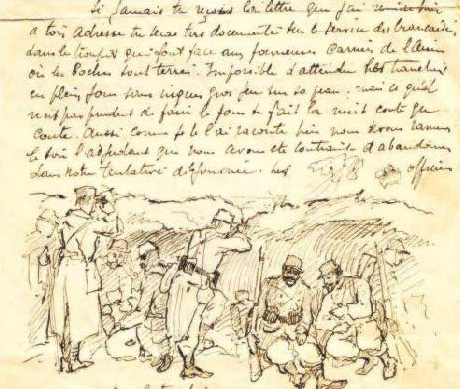 si jamais tu reçois la lettre que j'ai
à ton adresse tu seras très documenté sur le service des brancardiers
dans les troupes qui font face aux fameuses Carrières de l'Aisne
où les Boches sont terrés. Impossible d'atteindre les tranchées
en plein jour sans risquer gros jeu sur sa peau. mais ce qu'il
n'est pas prudent de faire le jour se fait la nuit coute que
coute. Aussi comme je te l'ai raconté hier nous avons ramené
le soir l'adjudant que nous avons été contraint d'abandonner
dans notre tentative de journée. Les officiers